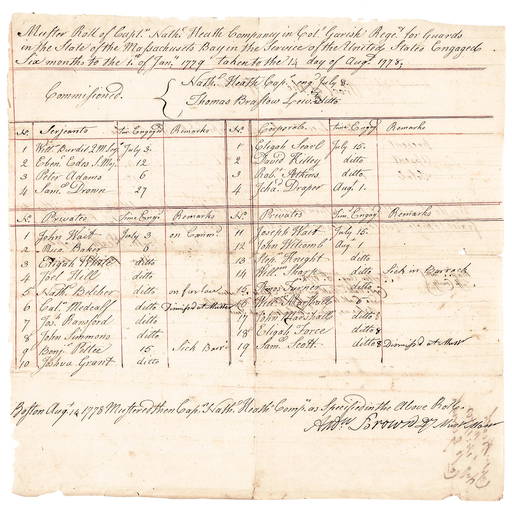 Muster Roll of Capt. Nathl. Heath Company in Col. Gerish Regt. for Guards
in the State of the Massachusets Bay in the Service of the United States Engaged
Six months to the 1st of Jany. 1779 taken to the 14 day of Augt. 1778;
Commissioned { Nathl. Heath Capt. engd. July 8
Thomas Brastow Lieut. ditto
No. Serjeants Time Engag'd Remarks No. Corporals Time Engag'd Remarks
1 Willm. Burdit July 3 1 Elijah Searl July 15
2 Ebenr. Edes 12 2 David Kelley ditto
3 Peter Adams 6 3 Robt. Atkins ditto
4 Saml. Drown 27 4 Jchd. Draper Augt. 1
No. Privates Time Engd. Remarks No Privates Time Engagd Remarks
1 John Wait July 3 on Comd. 11 Joseph Wait July 15
2 Baker 6 12 John Witcomb Augt. 1
3 Elijah ditto 13 Stepn. Knight ditto
4 Joel Hill ditto 14 Willm. Sharp ditto Sick in Barrack
5 Nathl. Belcher ditto on furlow 15 Turner ditto
6 Medcalf ditto Dismised at Muster 16 Willm.
7 Jos. Ransford ditto 17 John Marshall ditto
8 John Simmons ditto 18 Elijah Force ditto 8
9 Benj. Pettee 15 Sick Barr. 19 Saml. Scott ditto 8 Dismised at Must
10 Joshua Grant ditto
Boston Augt. 14 1778 Mustered then Capt. Nathl. Heath Compy. as Specified in the Above Roll
Andw. Brown Dy Must Mastr